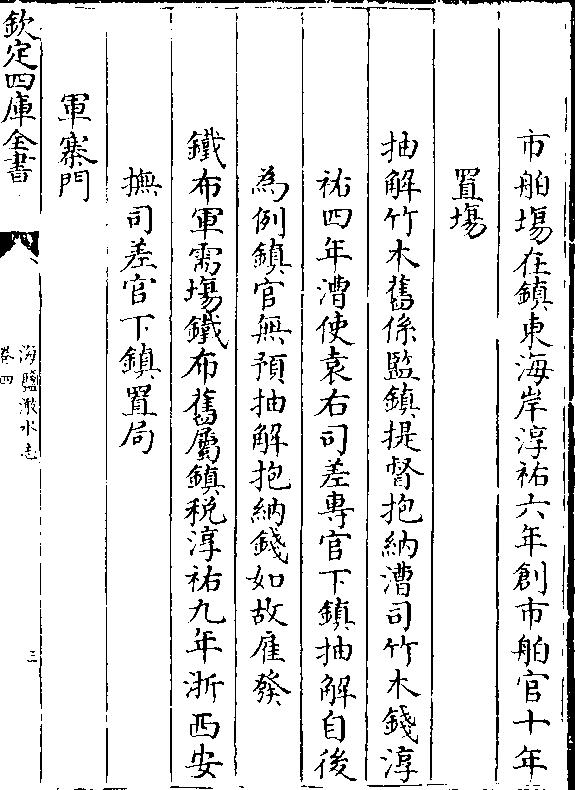 市舶塲在鎮東海岸淳祐六年創市舶官十年
置塲
抽解竹木舊係監鎮提督抱納漕司竹木錢淳
祐四年漕使袁右司差專官下鎮抽解自後
為例鎮官無預抽解抱納錢如故雇發
鐵布軍需塲鐵布舊屬鎮税淳祐九年浙西安
撫司差官下鎮置局
軍寨門
欽定四庫全書
海鹽澉水志
卷四
三